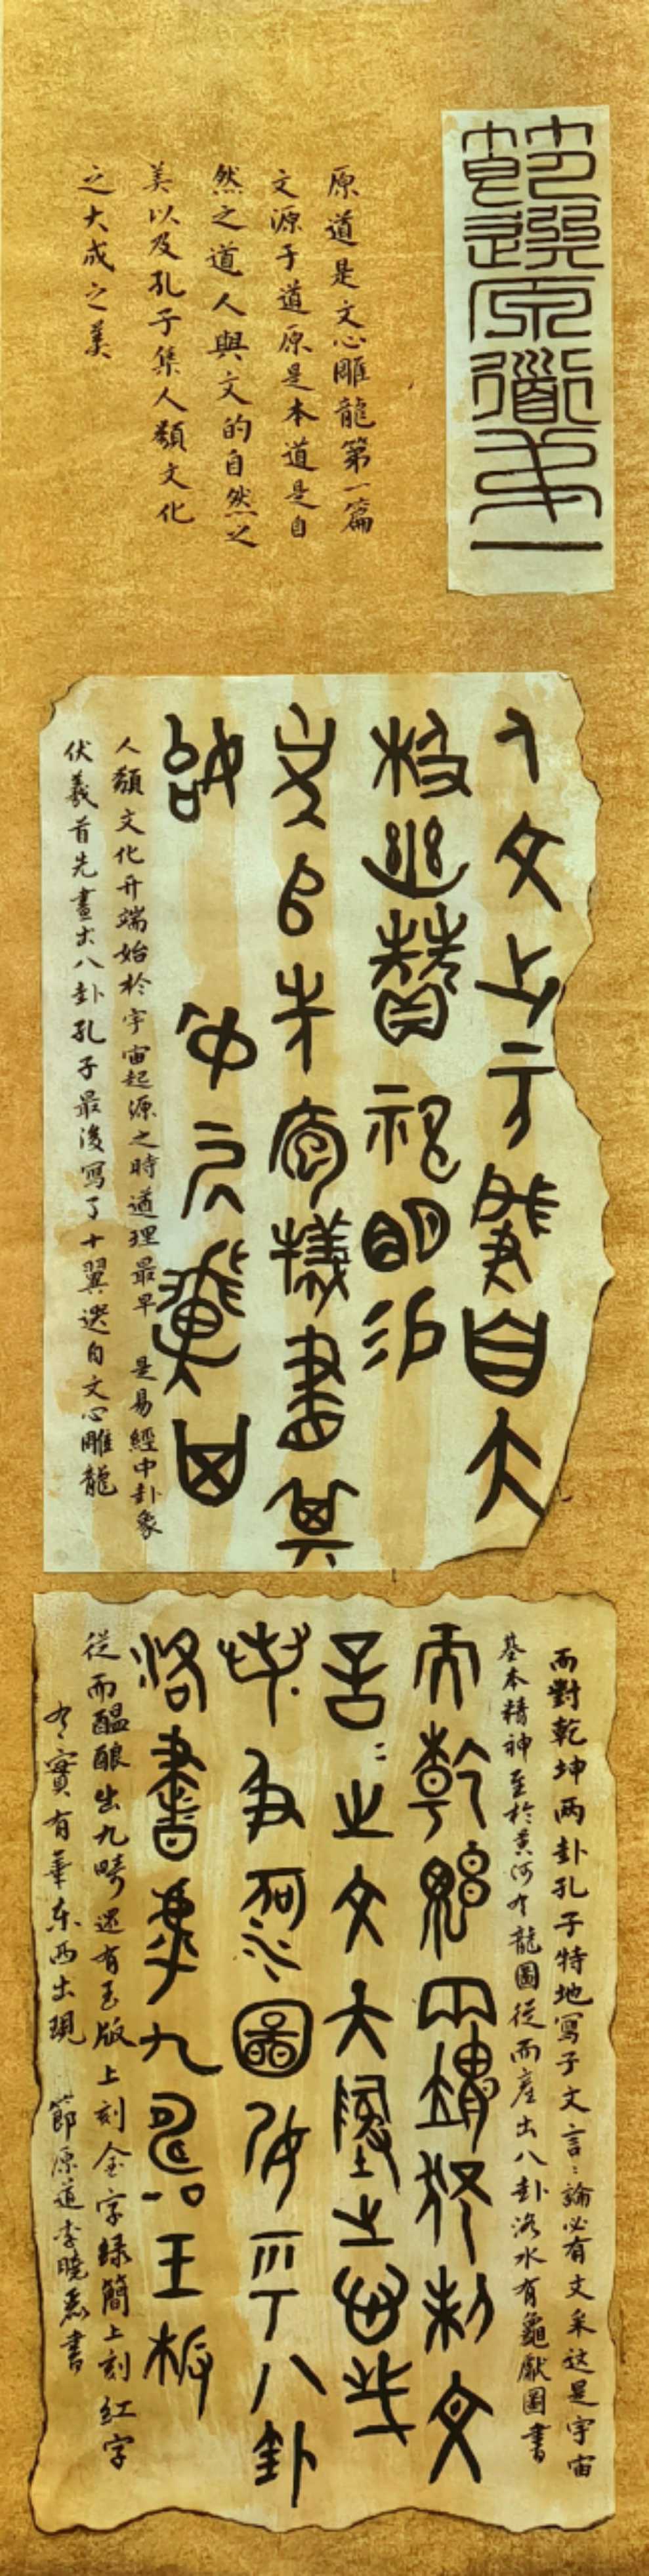 節選原道第一
原道是文心雕龍第一篇
文源于道原是本道是自
然之道人與文的自然之
美以及孔子集人類文化
之大成之美
人文之元肇自太
極幽贊神明易
象惟先庖犧畫其
始 仲尼翼其
人類文化开端始於宇宙起源之時道理最早 是易經中卦象
伏羲首先畫出八卦孔子最後寫了十翼選自文心雕龍
而對乾坤两卦孔子特地寫了文言：論必有文采這是宇宙
基本精神至於黃河有龍圖從而產出八卦洛水有龜獻圖書
而乾坤兩位獨制文
言〻之文天地之心哉
若迺河圖孕乎八卦
洛書乎九疇玉版
從而醖釀出九疇還有玉版上刻金字綠簡上刻紅字
有實有華东西出現 節原道李曉書